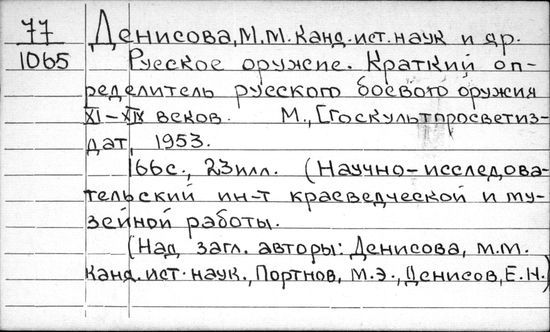 77
1065
Денисова, М.М. Канд. ист. наук и др.
Русское оружие. Краткий оп-
ределитель русского боевого оружия
XI–XIX веков. М., [Госкультпросветиз-
дат, 1953.
166с., 23илл. (Научно-исследова-
тельский ин-т краеведческой и му-
зейной работы.
(Над загл. авторы: Денисова, М.М.
Канд. ист. наук., Портнов, М.Э., Денисов, Е.Н.)